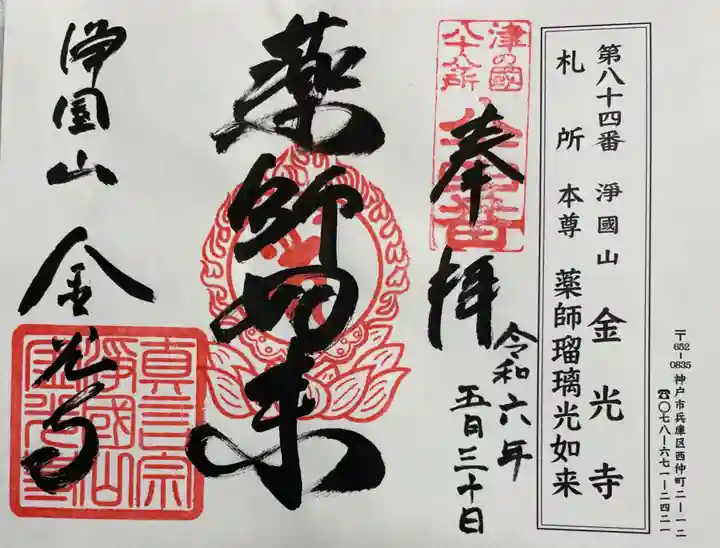 第八十四番 淨國山 金光寺
札所本尊 薬師瑠璃光如来
〒652-0835 神戸市兵庫区西仲町二-一-二
☎〇七八-六七一-二四二一
津の國
八十八所
奉拝
令和六年
五月三十日
薬師如来
淨国山 金光寺
真言宗
淨國山
金光寺